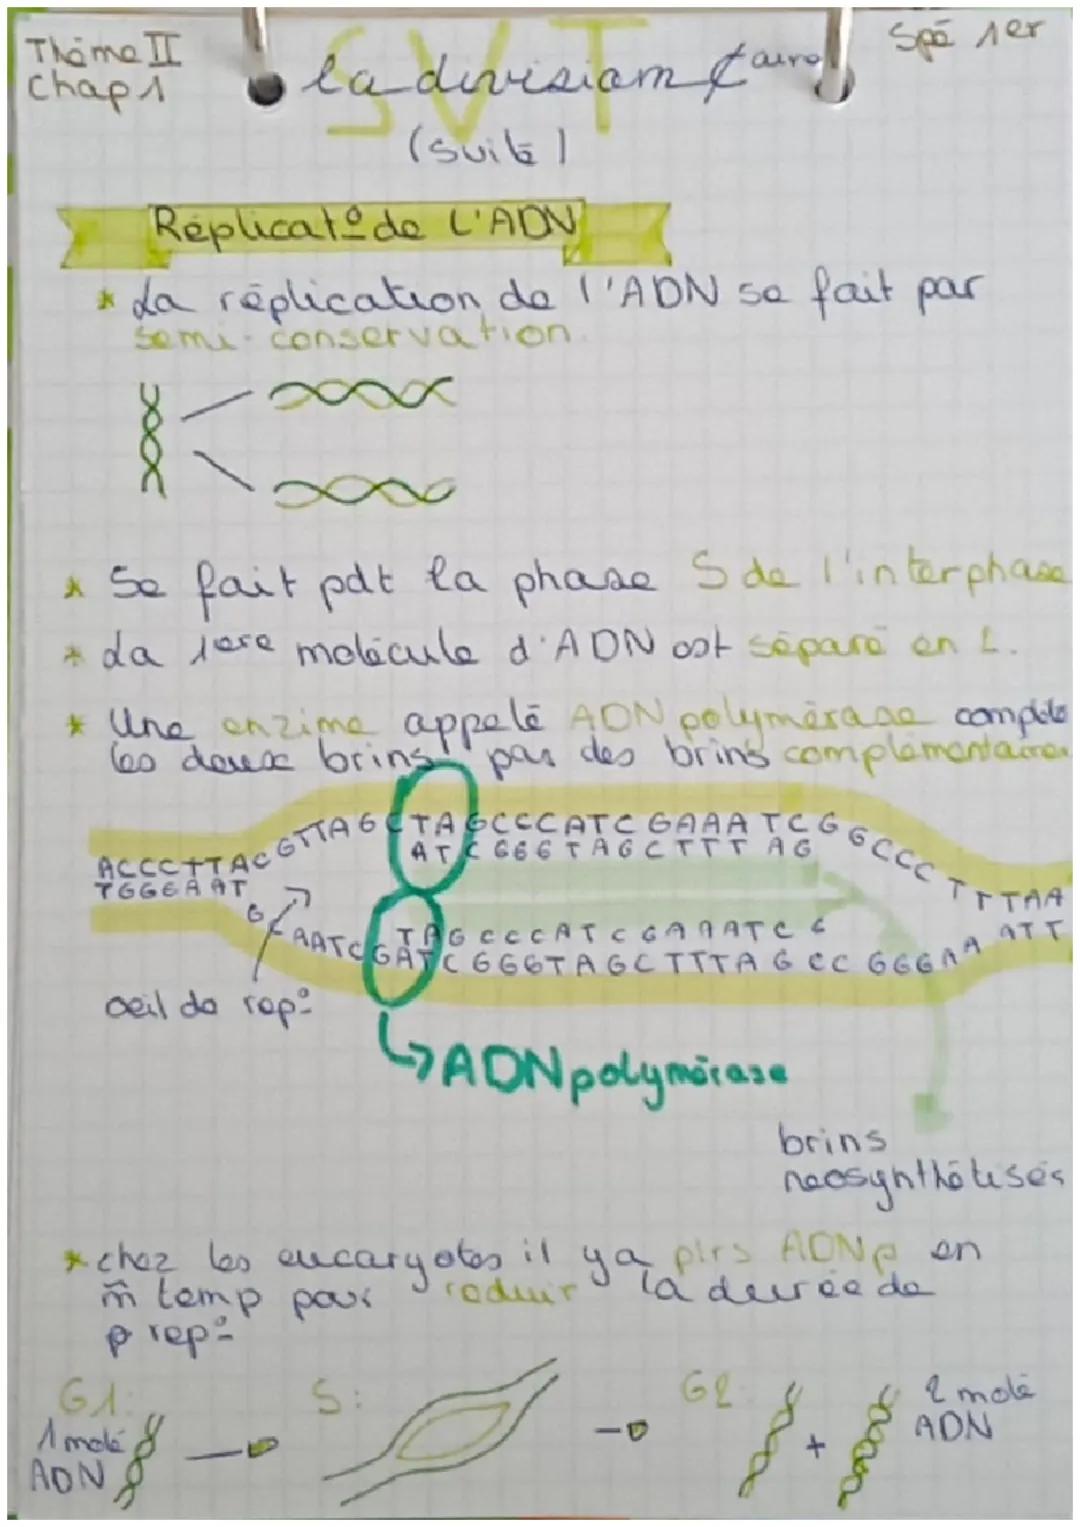 Thème II
Chap 1
SVT
Spé 1er
la division ¢aire
(suite)
Réplicat° de l'ADN
* La réplication de l'ADN se fait par
semi-conservation.
* Se fait pdt la phase S de l'interphase
* La 1ere molécule d'ADN est séparé en 2.
* Une enzime appelé ADN polymérase complète
les deux brins par des brins complémentaires
ACCCTTACGTTAGCTAGCCCATCGAAATCGGCCCTTTAA
ATCGGGTAGCTTTAG
TGGGAAT
TAGCCCATCGAAATCG
GCAATCGATCGGGTAGCTTTAGCCGGGAAATT
oeil de rep°
↳ADN polymérase
brins
neosynthétisés
* chez les eucaryotes il y a plrs ADNp en
m̂ temp pour reduir la durée de
rep°
G1:
1 molé
ADN
S:
G2:
+
2 molé
ADN